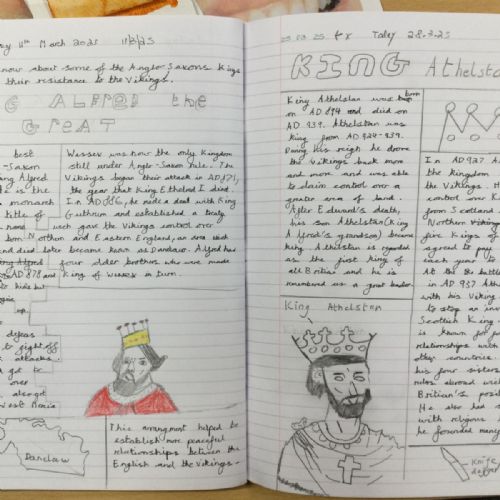 11th March 2025 11/3/25
now about some of the Anglo-Saxons kings
their resistance to the Vikings.
Alfred the
Great
best
-Saxon
ing Alfred
e is the
monarch
title of
born
and died
King Alfred
AD 878 and
defeas
to fight off
attacks.
got to
over
also got
West Mercia
Wessex was now the only Kingdom
still under Anglo-Saxon rule. The
Vikings began their attack in AD 871,
the year that King Ethelred I died.
In AD 886, he made a deal with King
Guthrum and established a treaty
wich gave the Vikings control over
Northen and Eastern England, an area wich
later became known as Danelaw. Alfred had
four older brothers who were made
King of Wessex in turn.
Danelaw
This arrangment helped to
establish more peaceful
relationships between the
English and the Vikings.
28.03.25 Friday 28.3.25
KING Athelsta
King Athelstan was born
on AD 894 and died on
AD 939. Athelstan was
king from AD 924-939.
During his reign he drove
the Vikings back more
and more and was able
to claim control over a
greater area of land.
After Edward's death,
his son Athelstan (King
Alfred's grandson) became
king. Athelstan is regarded
as the first king of
all Britian and he is
remembered as a great leader.
King Athelstan
In AD 927 A
the kingdom
the Vikings. H
control over K
from Scotland
Northern
five Kings of
agreed to pay
each year to
At the battle
in AD 937 Athel
with his Viking
to stop an inv
Scottish King
is known for
relationships with
other countries.
his four sisters
rulers abroad
Britian's posit
He also had
with religious
he founded many
Knife
dagger